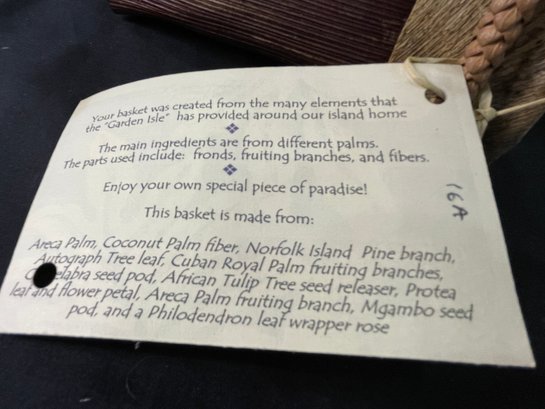 Your basket was created from the many elements that
the "Garden Isle" has provided around our island home
The main ingredients are from different palms.
The parts used include: fronds, fruiting branches, and fibers.
Enjoy your own special piece of paradise!
This basket is made from:
Areca Palm, Coconut Palm fiber, Norfolk Island Pine branch,
Autograph Tree leaf, Cuban Royal Palm fruiting branches,
seed pod, African Tulip Tree seed releaser, Protea
leaf and flower petal, Areca Palm fruiting branch, Mgambo seed
pod, and a Philodendron leaf wrapper rose
16A